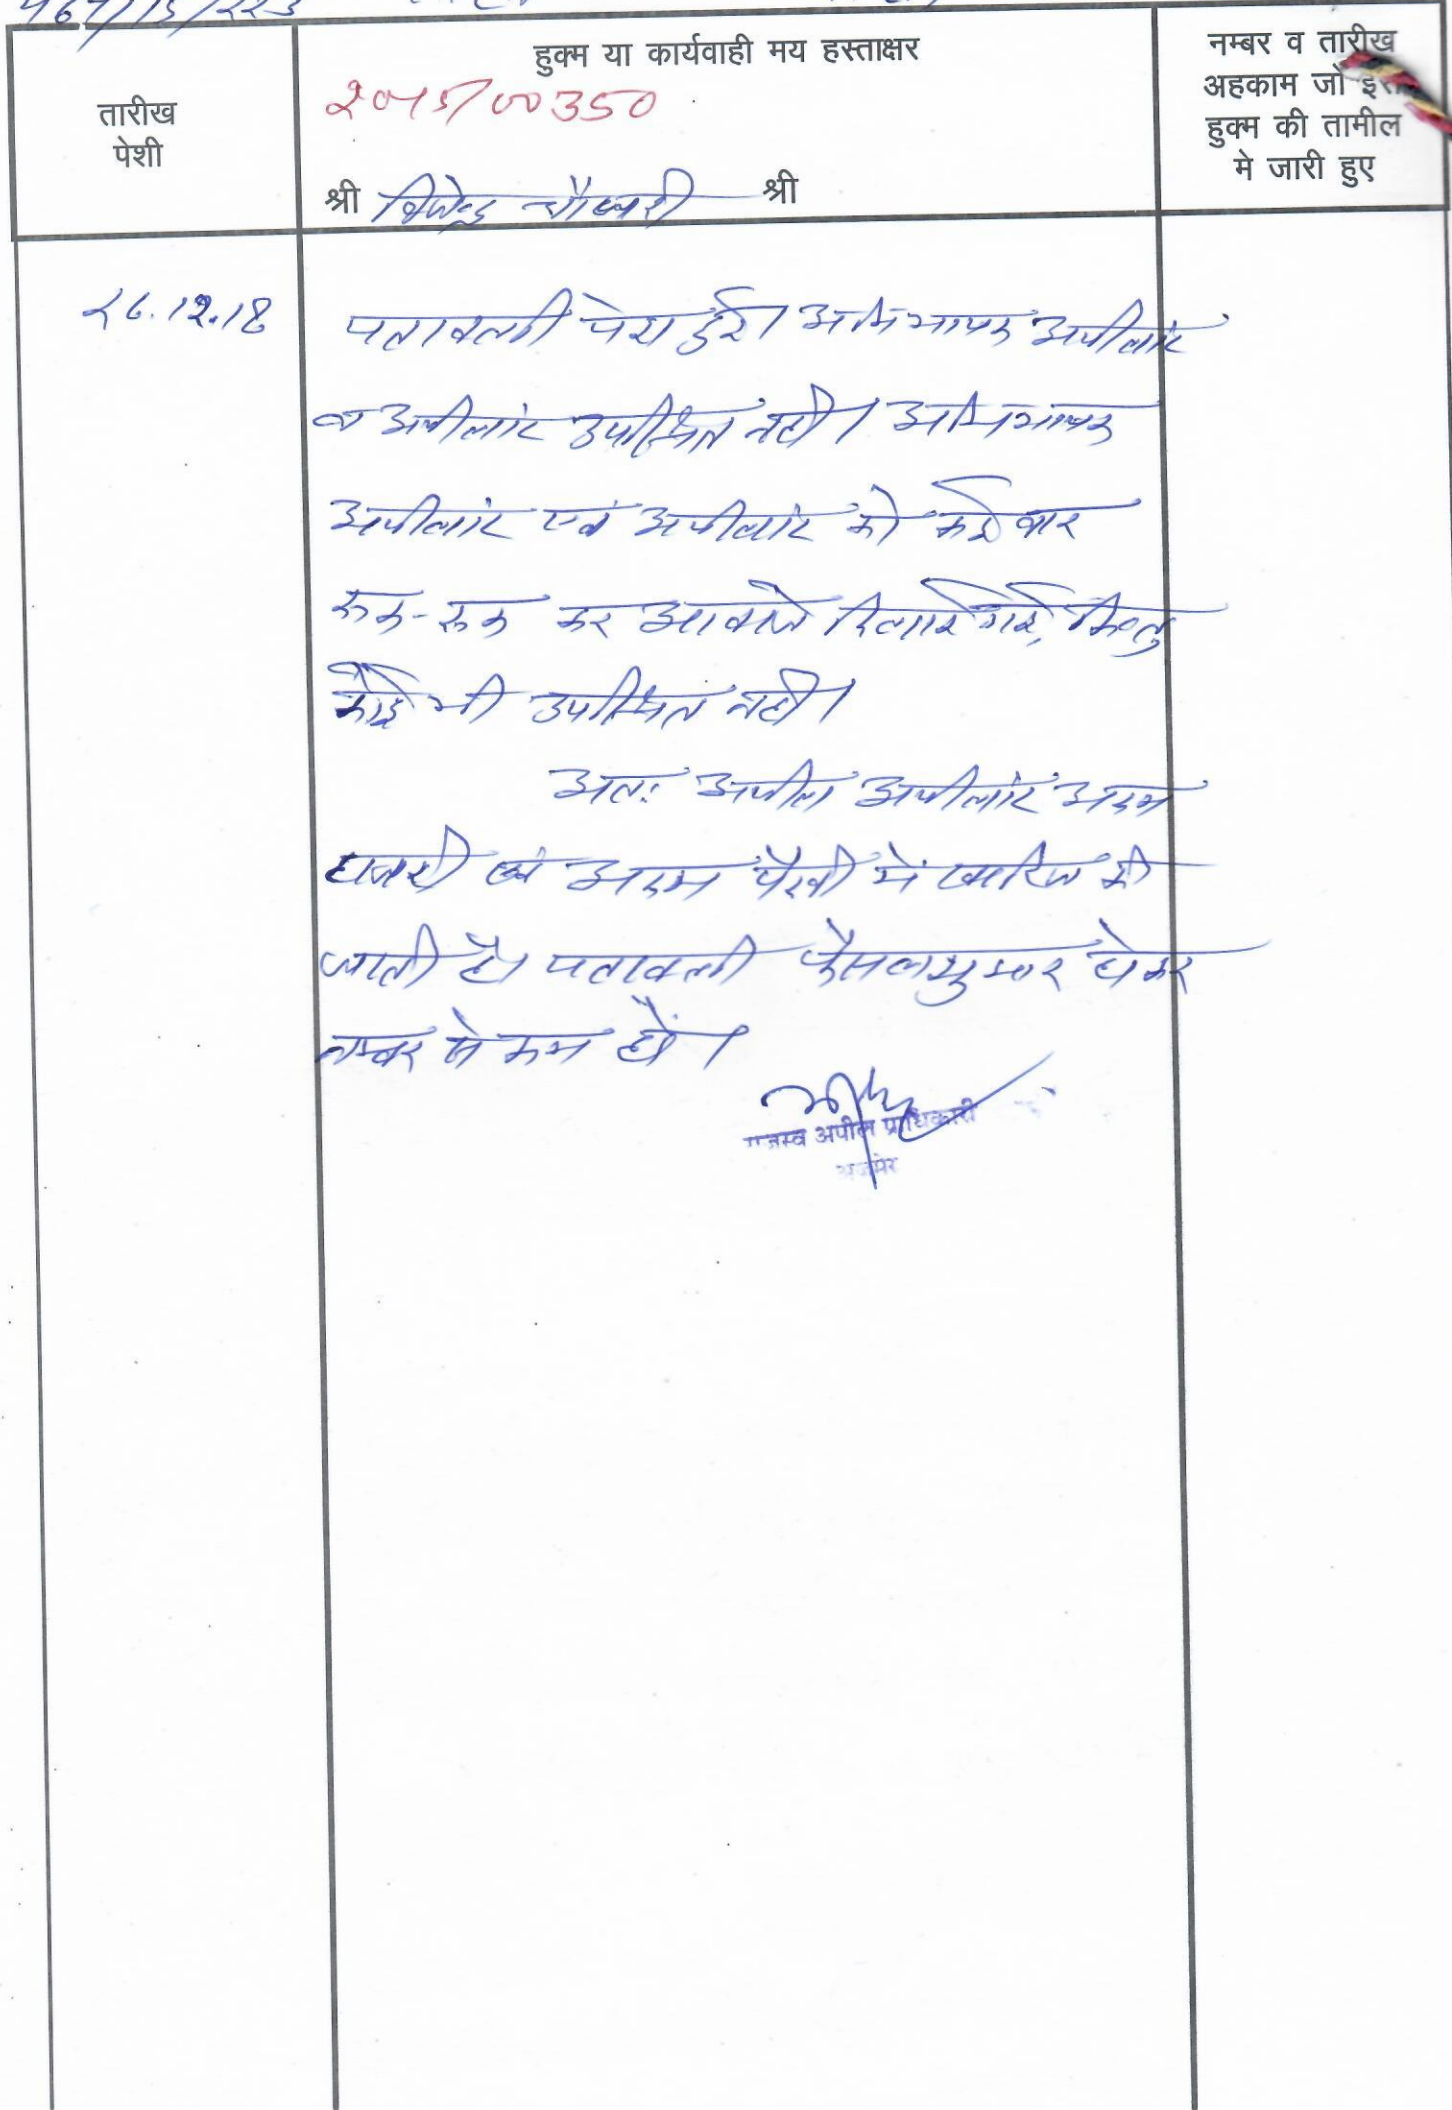 हुक्म या कार्यवाही मय हस्ताक्षर
तारीख
पेशी
2015/00350
श्री विजेन्द्र चौधरी श्री
नम्बर व तारीख
अहकाम जो इस
हुक्म की तामील
मे जारी हुए
26.12.18
पत्रावली पेश हुई। अभिभाषक अपीलांट
व अपीलांट उपस्थित नहीं। अभिभाषक
अपीलांट एवं अपीलांट को कई बार
रूक-रूक कर आवाजे दिलाई गई, किन्तु
कोई भी उपस्थित नहीं।
अतः अपील अपीलांट अदम
हाजरी एवं अदम पैरवी में खारिज की
जाती है। पत्रावली फैसलशुमार होकर
नम्बर से कम हो।
राजस्व अपील प्राधिकारी
अजमेर